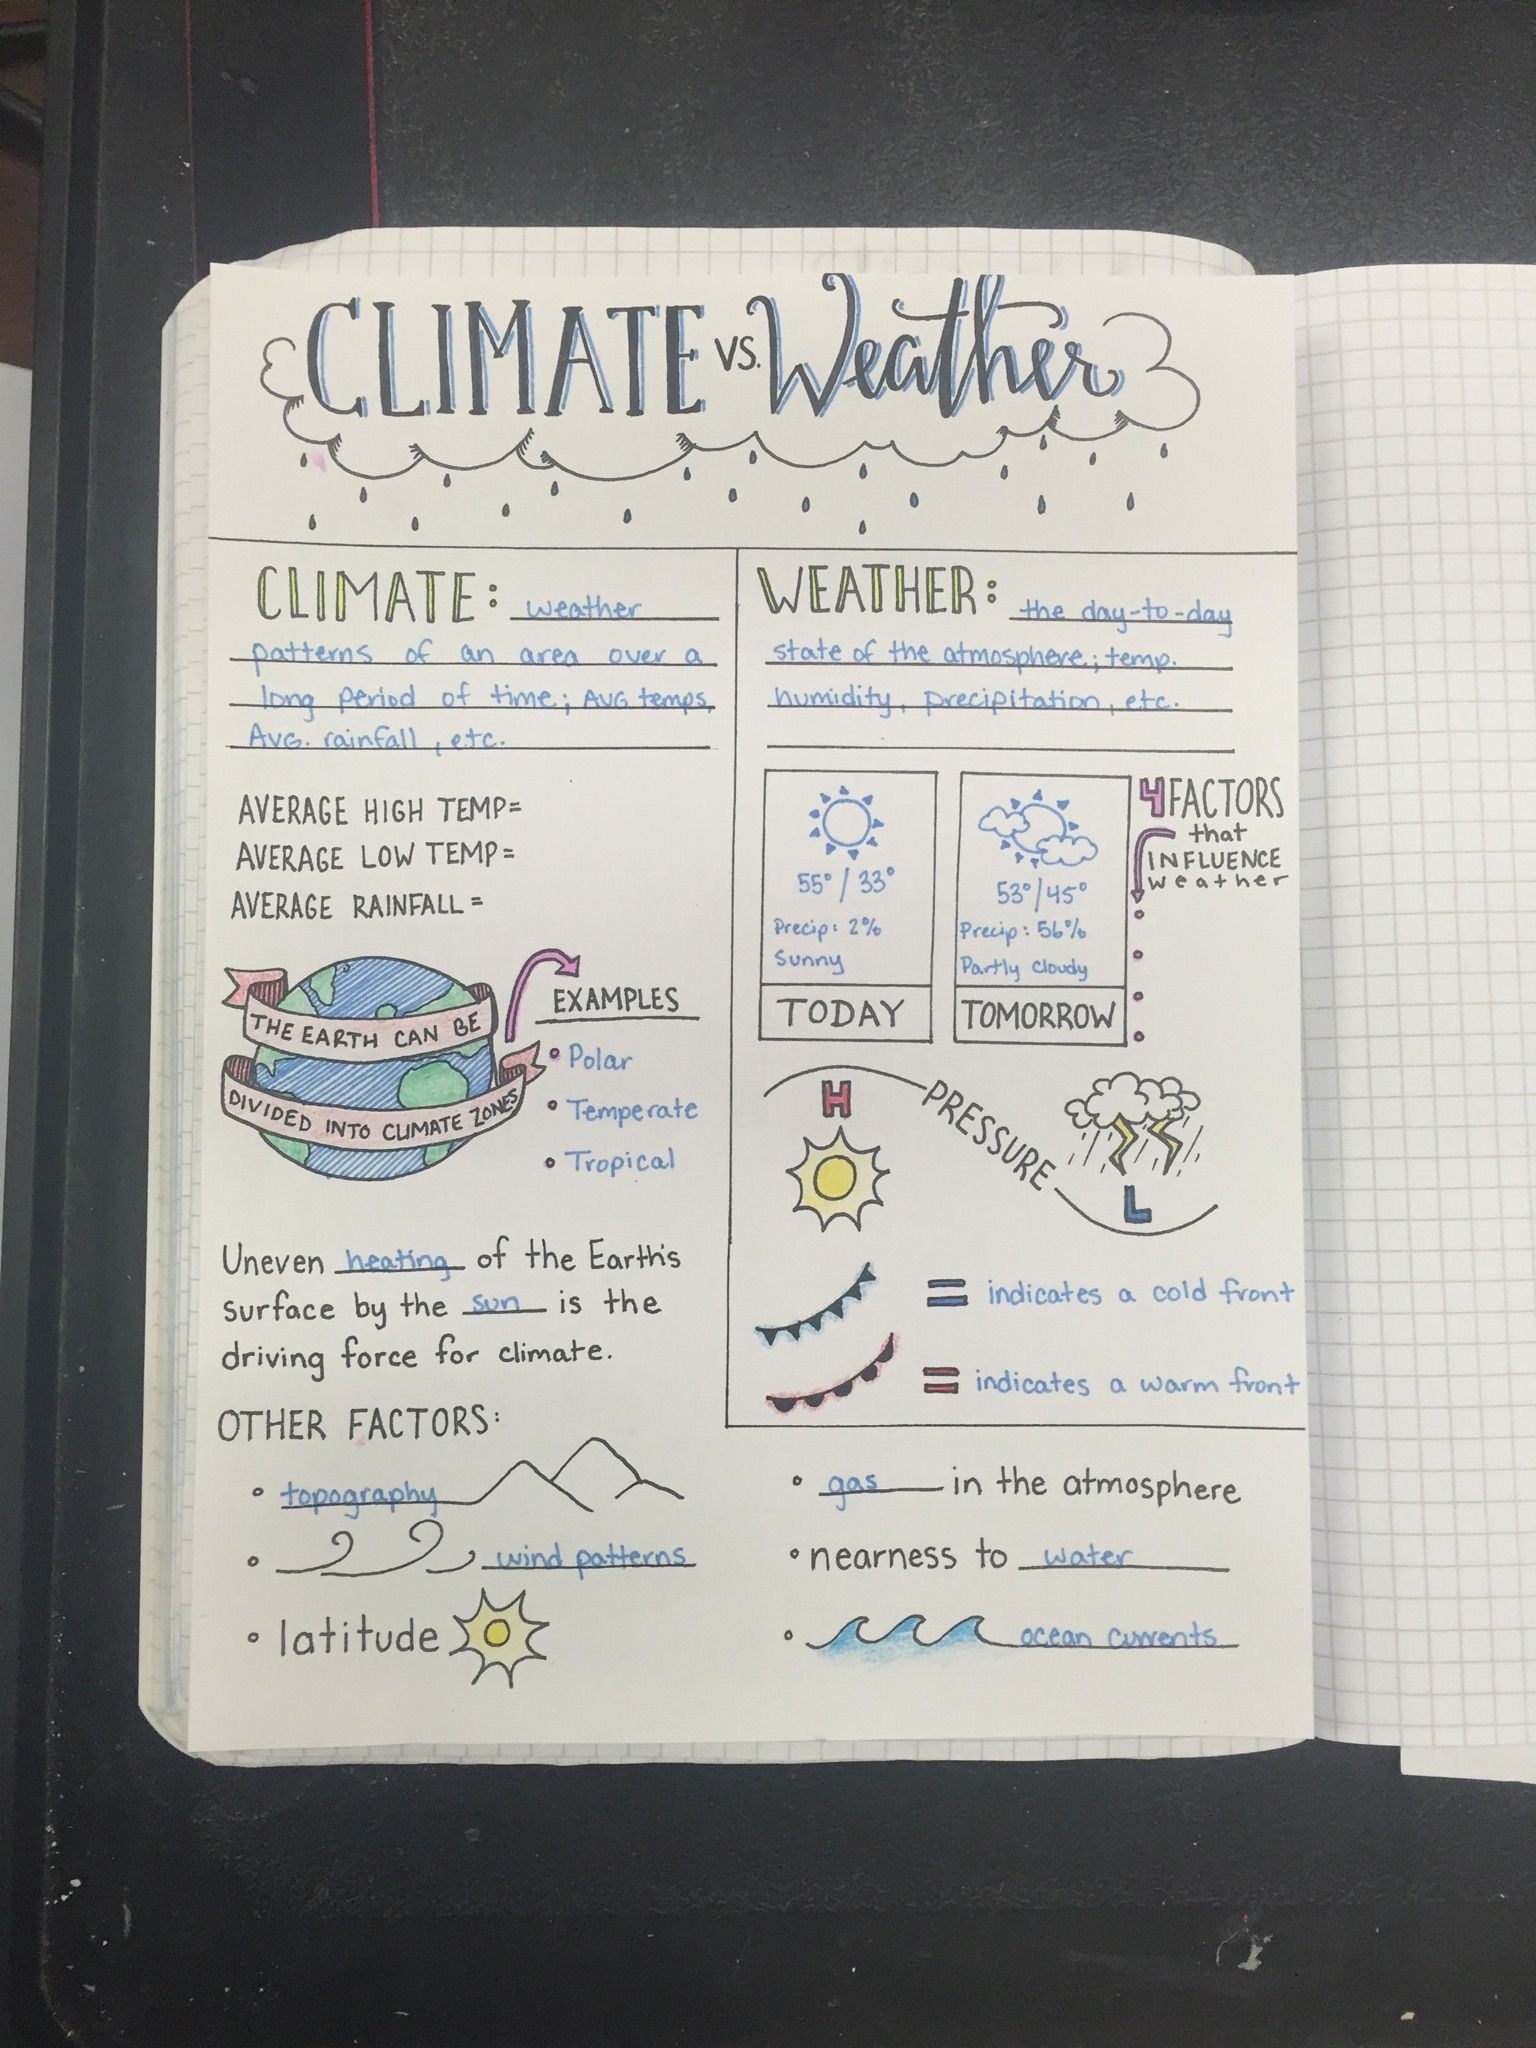 CLIMATE VS. Weather
CLIMATE: weather
patterns of an area over a
long period of time; AVG temps,
AVG. rainfall, etc.
AVERAGE HIGH TEMP=
AVERAGE LOW TEMP=
AVERAGE RAINFALL=
THE EARTH CAN BE
DIVIDED INTO CLIMATE ZONES
EXAMPLES
• Polar
• Temperate
• Tropical
Uneven heating of the Earth's
surface by the sun is the
driving force for climate.
WEATHER: the day-to-day
state of the atmosphere; temp.
humidity, precipitation, etc.
55°/33°
Precip: 2%
Sunny
TODAY
53°/45°
Precip: 56%
Partly cloudy
TOMORROW
4 FACTORS
that
INFLUENCE
weather
H
PRESSURE
L
= indicates a cold front
= indicates a warm front
OTHER FACTORS:
• topography
• wind patterns
• latitude
• gas in the atmosphere
• nearness to water
• ocean currents